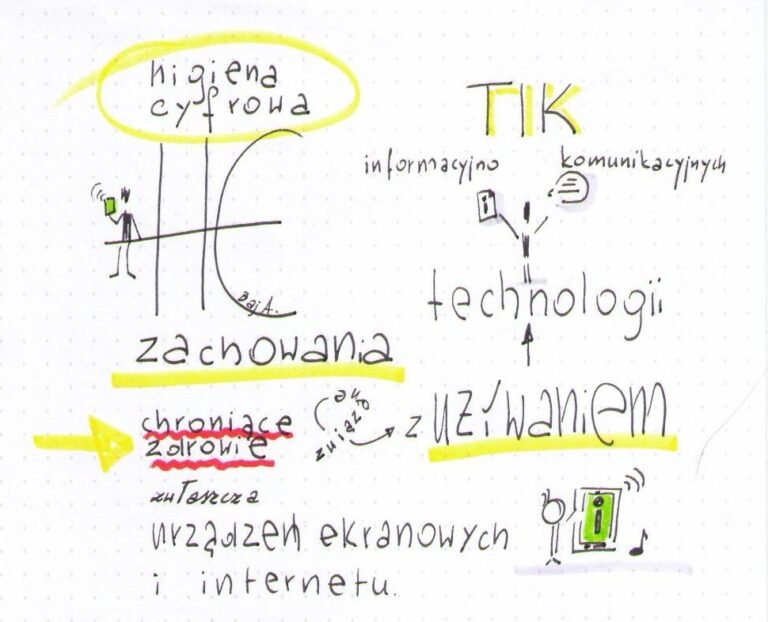 higiena
cyfrowa
HC
Baj A.
zachowania
chroniące
zdrowie
z używaniem
technologii
informacyjno komunikacyjnych
TIK
zwłaszcza
urządzeń ekranowych
i internetu.